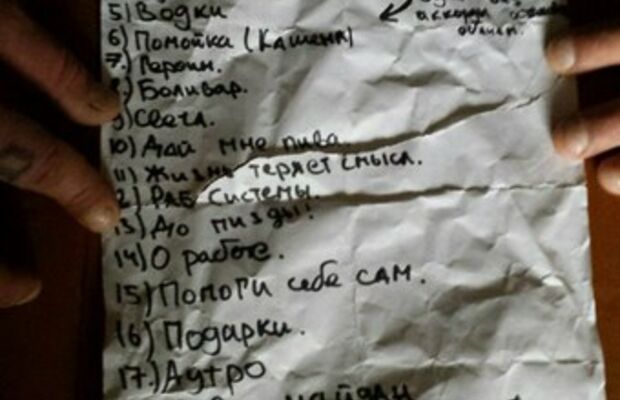 5) Водки
6) Помойка (Кашена)
7.) Героин.
8) Боливар.
9) Свега.
10) Дай мне пива.
11) Жизнь теряет смысл.
12) Раб системы.
13) До пизды!
14) О работе.
15) Помоги себе сам.
16) Подарки.
17.) Аутро